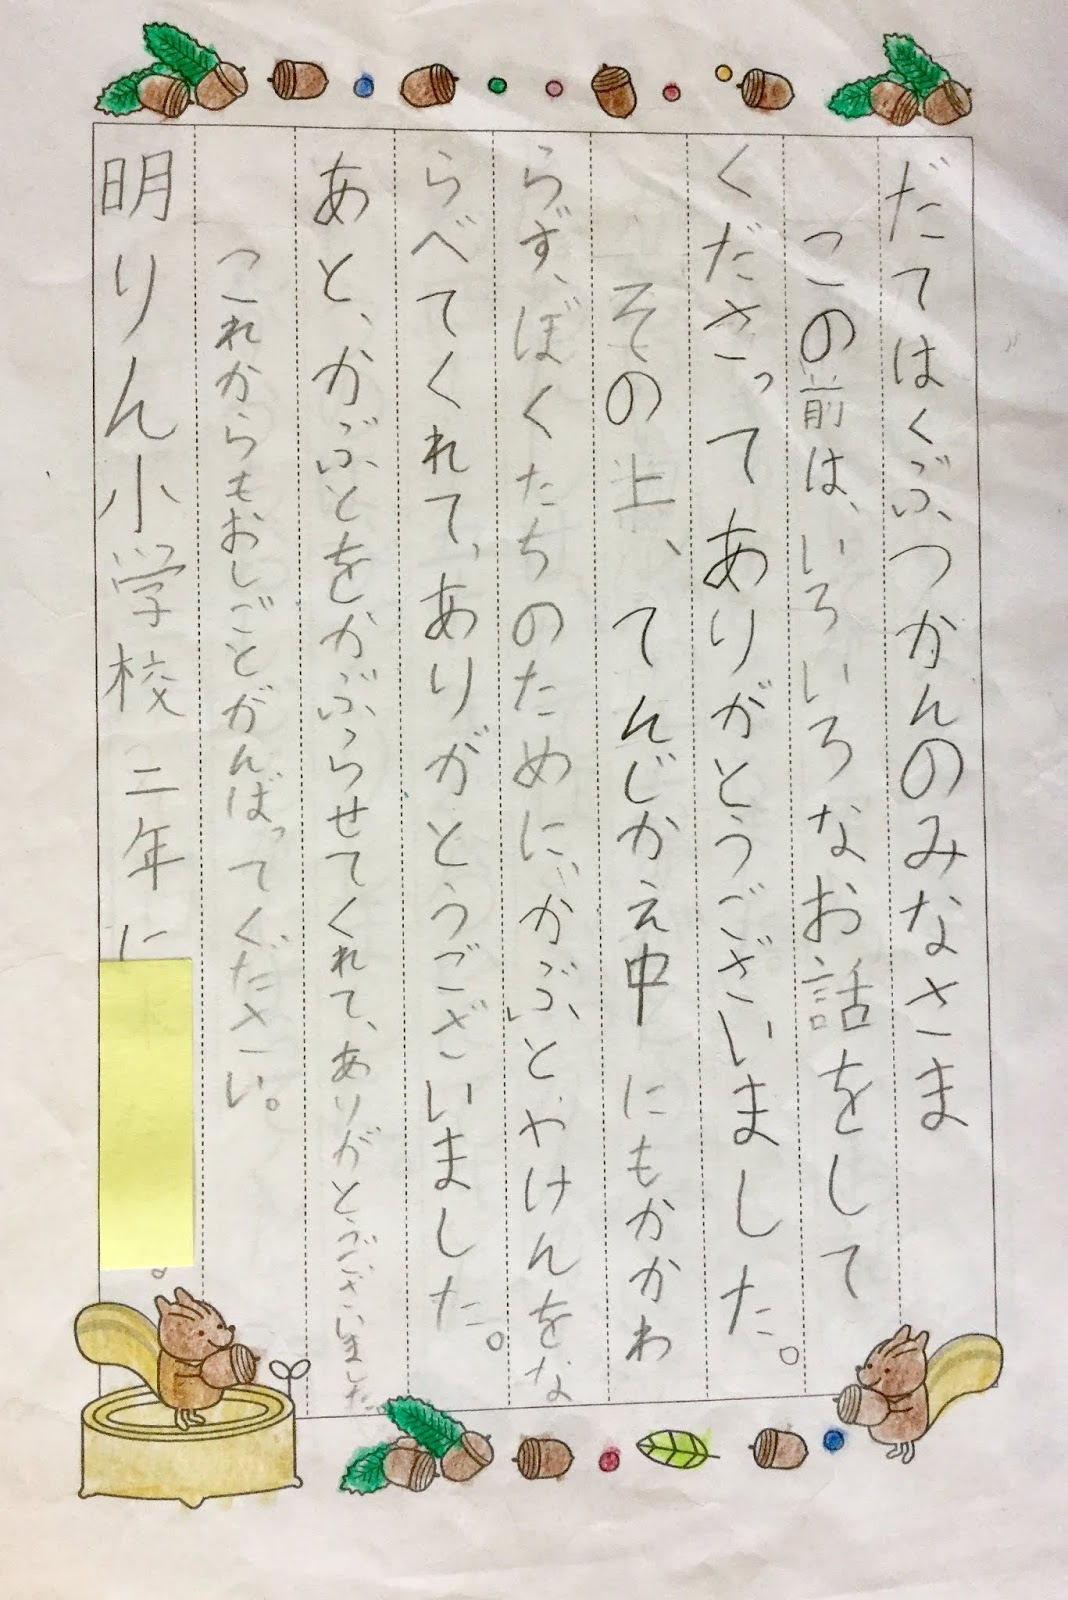 だてはくぶつかんのみなさま
この前は、いろいろなお話をして
くださってありがとうございました。
その上、てんじかえ中にもかかわ
らず、ぼくたちのために、かぶとやけんをな
らべてくれて、ありがとうございました。
あと、かぶとをかぶらせてくれて、ありがとうございました。
これからもおしごとがんばってください。
明りん小学校二年に